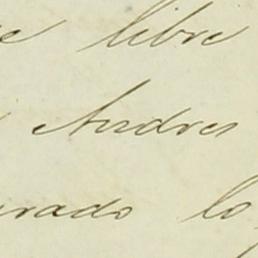 libre
Andres
rado lo